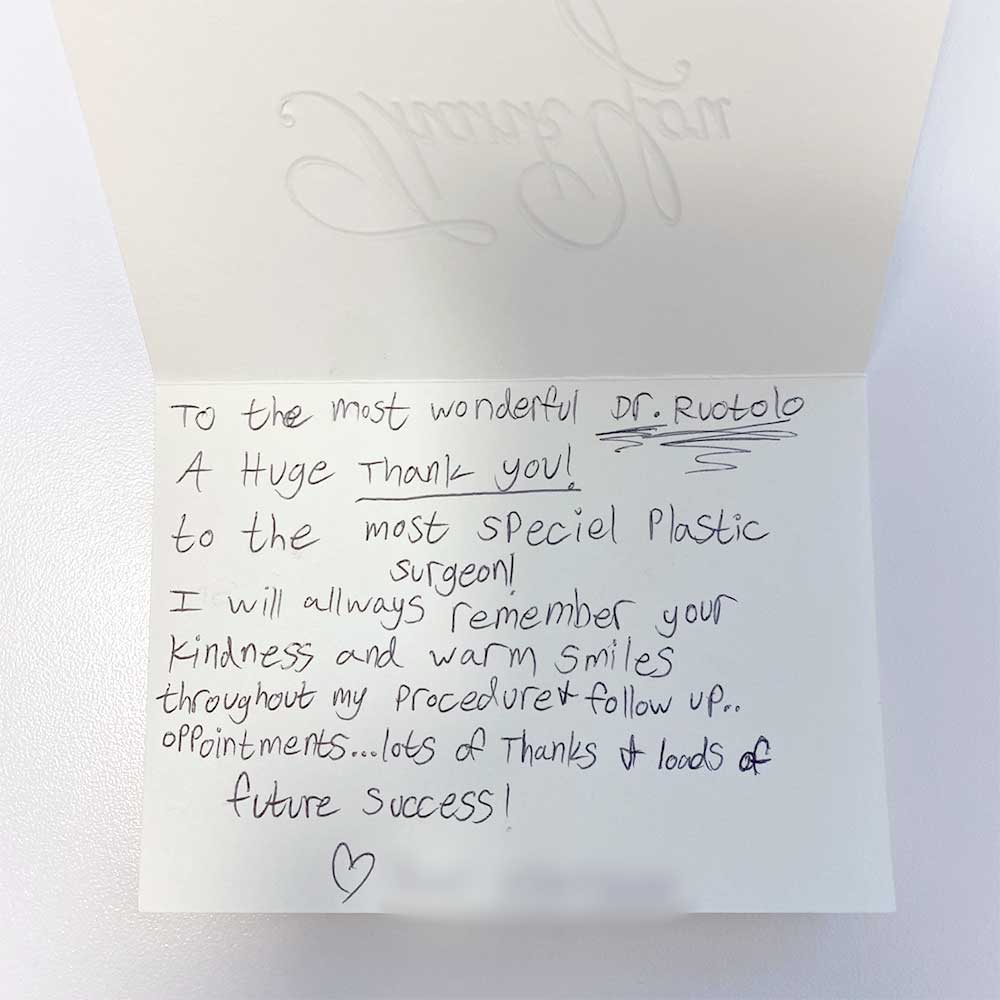 Thank You
To the most wonderful Dr. Ruotolo
A Huge Thank you!
to the most speciel Plastic
surgeon!
I will allways remember your
kindness and warm smiles
throughout my procedure & follow up..
oppointments...lots of Thanks & loads of
future success!